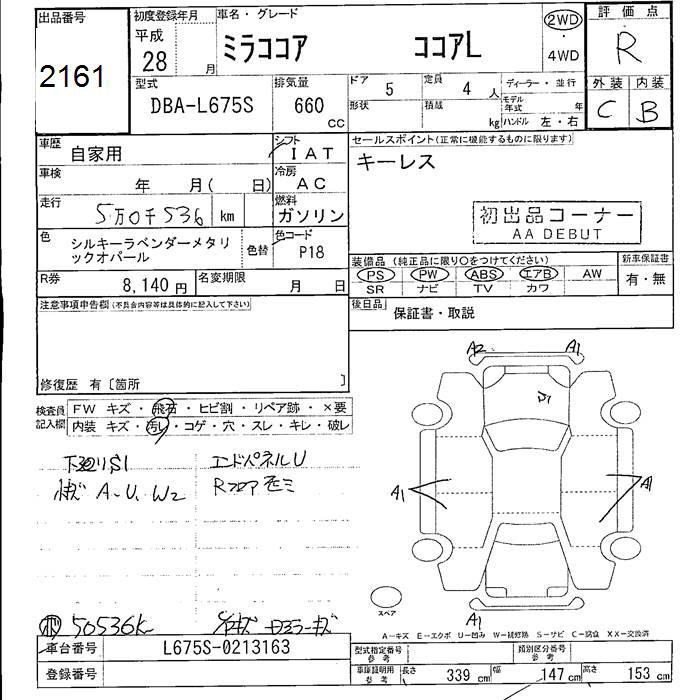 出品番号
2161
初度登録年月
平成
28 月
車名・グレード
ミラココア ココアL
2WD
・
4WD
評価点
R
外装 内装
C B
型式
DBA-L675S
排気量
660
cc
ドア 5
定員 4 人
ディーラー・並行
形状
積載 kg
モデル年式 年
ハンドル 左・右
車歴
自家用
シフト
IAT
車検
年 月( 日)
冷房
AC
走行
5万0千536 km
燃料
ガソリン
色
シルキーラベンダーメタリ
ックオパール
色替
色コード
P18
R券
8,140円
名変期限
月 日
セールスポイント(正常に機能するものに限ります)
キーレス
初出品コーナー
AA DEBUT
装備品 (純正品に限り○をつけてください)
PS PW ABS エアB AW
SR ナビ TV カワ
新車保証書
有・無
後日品
保証書・取説
注意事項申告欄(不具合内容等は具体的に記入して下さい)
修復歴 有〔箇所 〕
検査員
記入欄
FW キズ・飛石・ヒビ割・リペア跡・×要
内装 キズ・汚レ・コゲ・穴・スレ・キレ・破レ
下廻りS1
エンドパネルU
A-U、W2
Rフロア
A2 A1
A1 A1
A1
スペア
A-キズ E-エクボ U-凹み W-補修跡 S-サビ C-腐食 XX-交換済
50536K
車台番号
L675S-0213163
登録番号
型式指定番号
参考
類別区分番号
参考
車庫証明用
参考
長さ 339 cm 幅 147 cm 高さ 153 cm